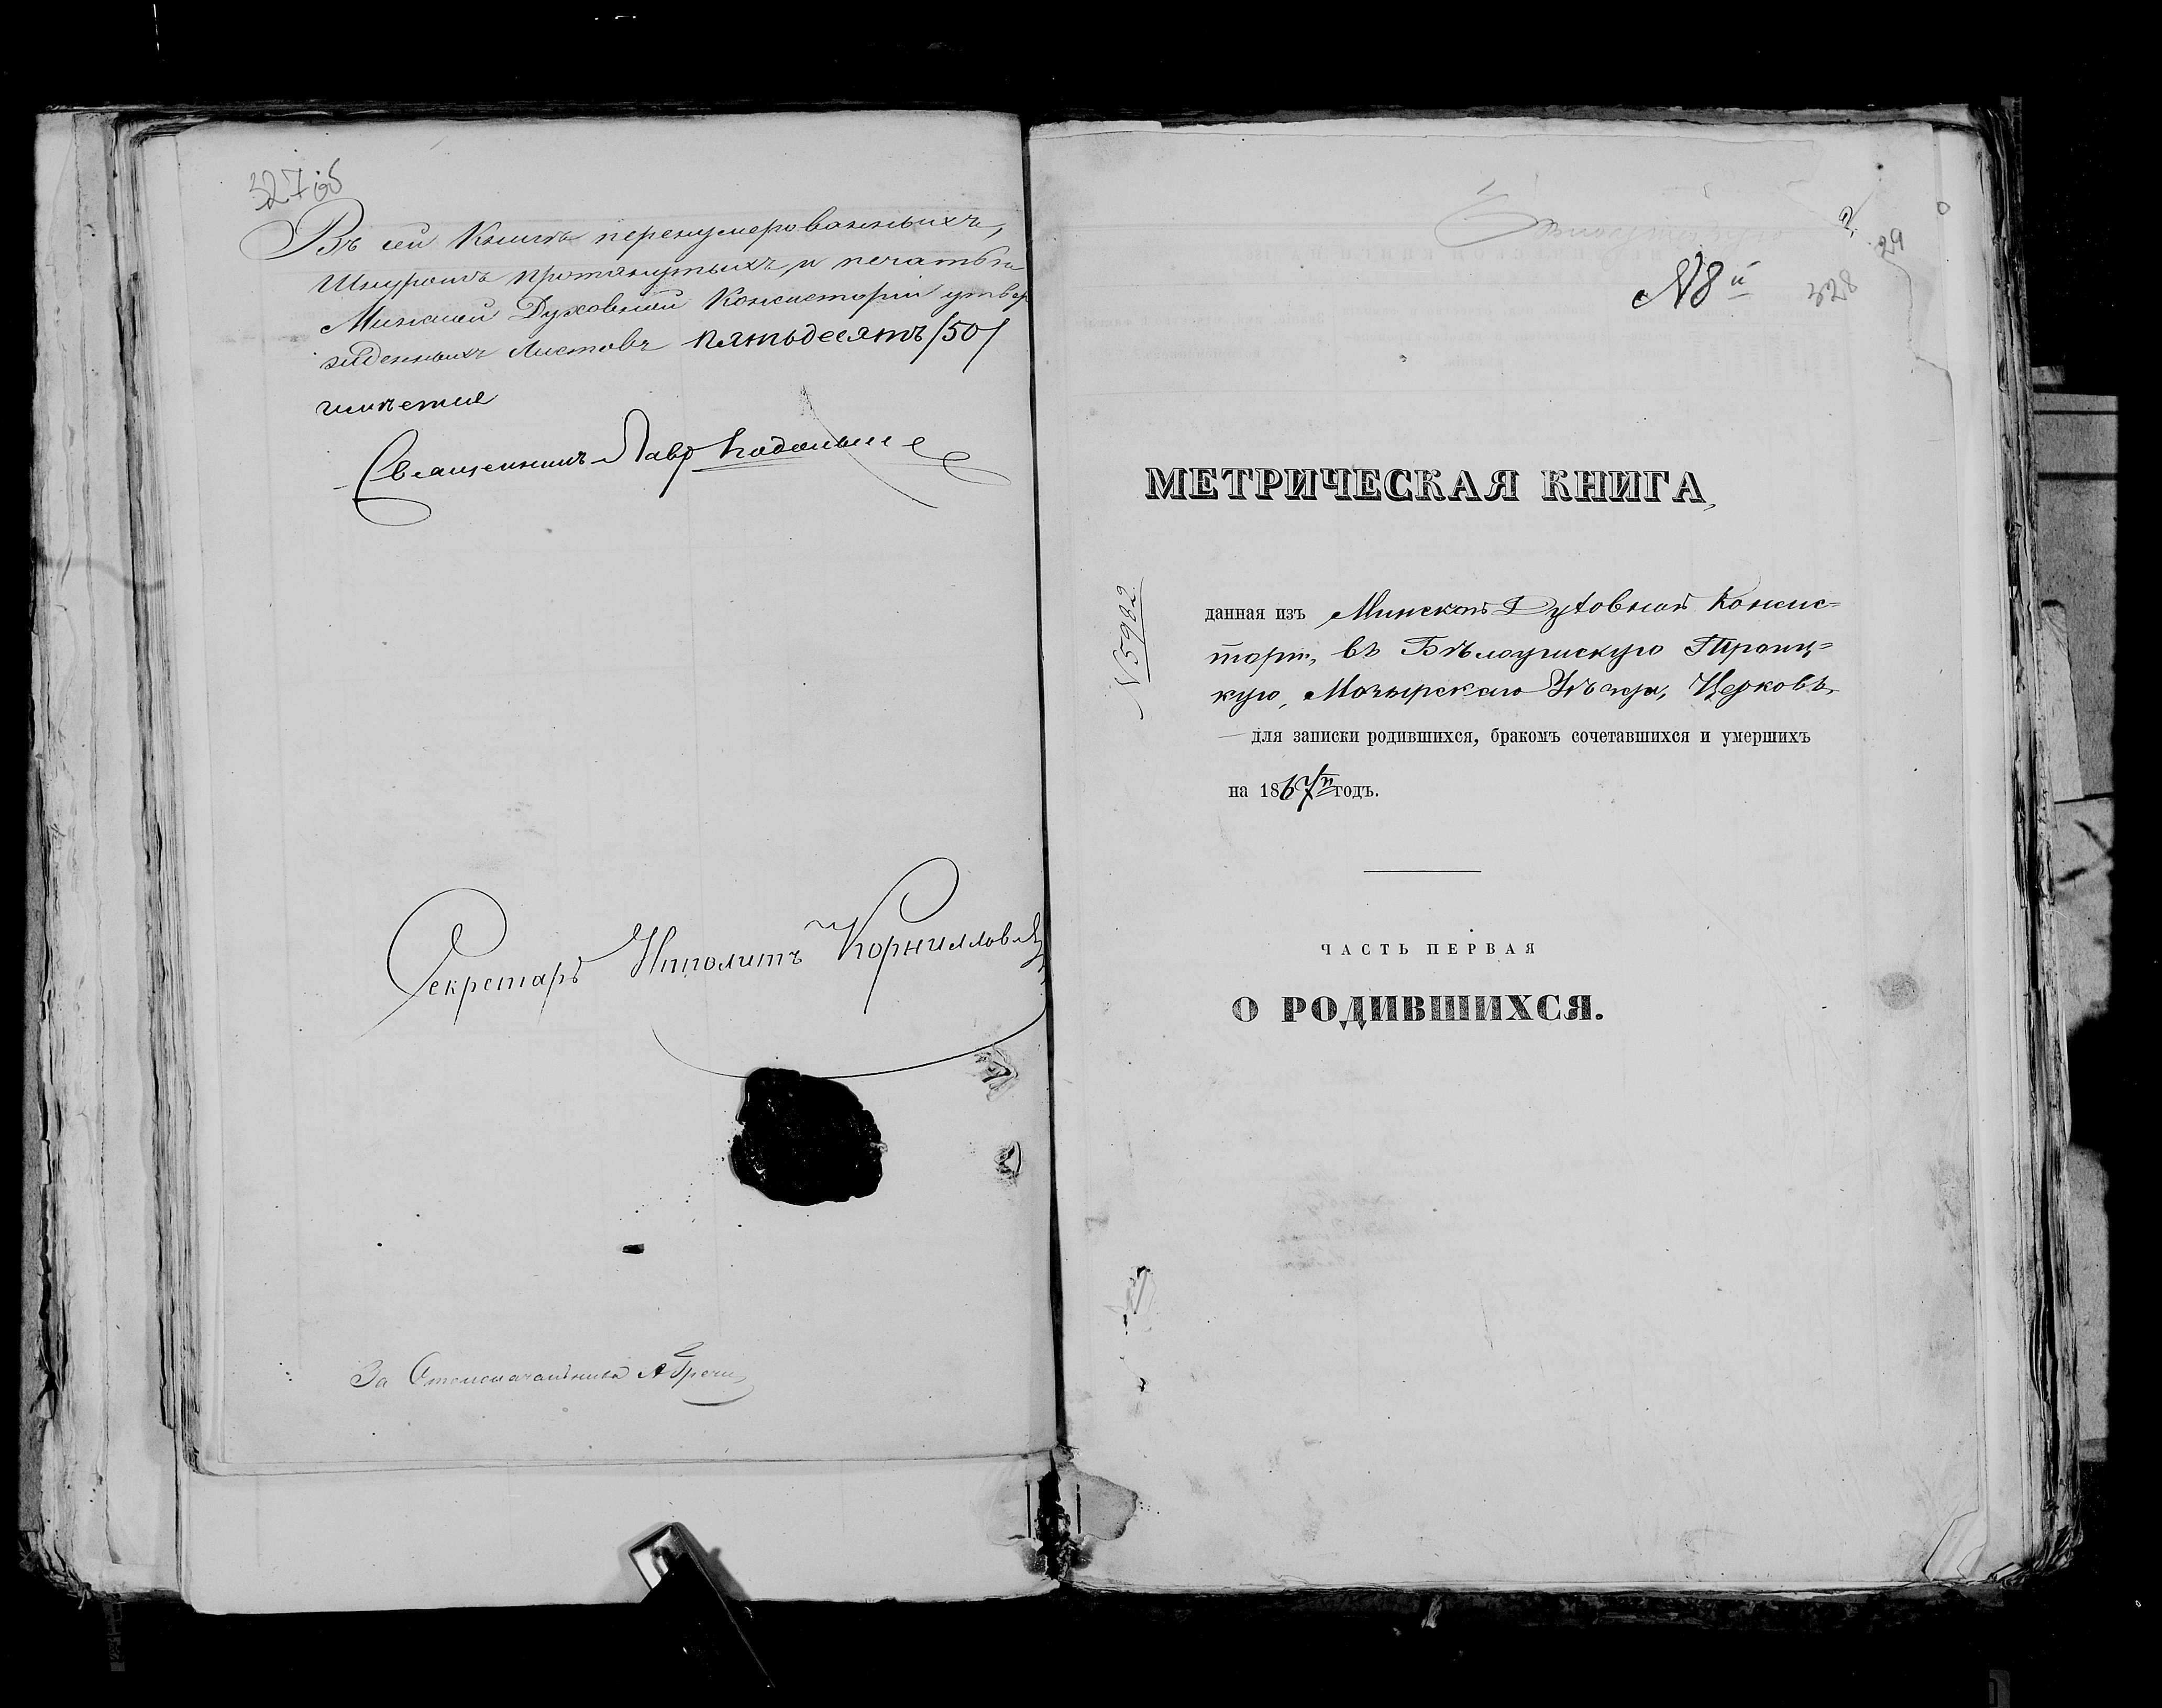 327 об
Въ сей Книгѣ перенумерованныхъ,
Шнуромъ протянутыхъ, и печатью
Минской Духовной Консисторіи утвер
жденныхъ Листовъ пятьдесятъ /50/
Священникъ Лавр
Секретарь Ипполитъ Корнилловъ
За Столоначальника А
29
328
№ 8й
МЕТРИЧЕСКАЯ КНИГА,
№ 5922
данная изъ Минской Духовной Консис=
торіи, въ Бѣлоушскую Троиц=
кую, Мозырскаго Уѣзда, Церковь,
для записки родившихся, бракомъ сочетавшихся и умершихъ
на 1867й годъ.
ЧАСТЬ ПЕРВАЯ
О РОДИВШИХСЯ.